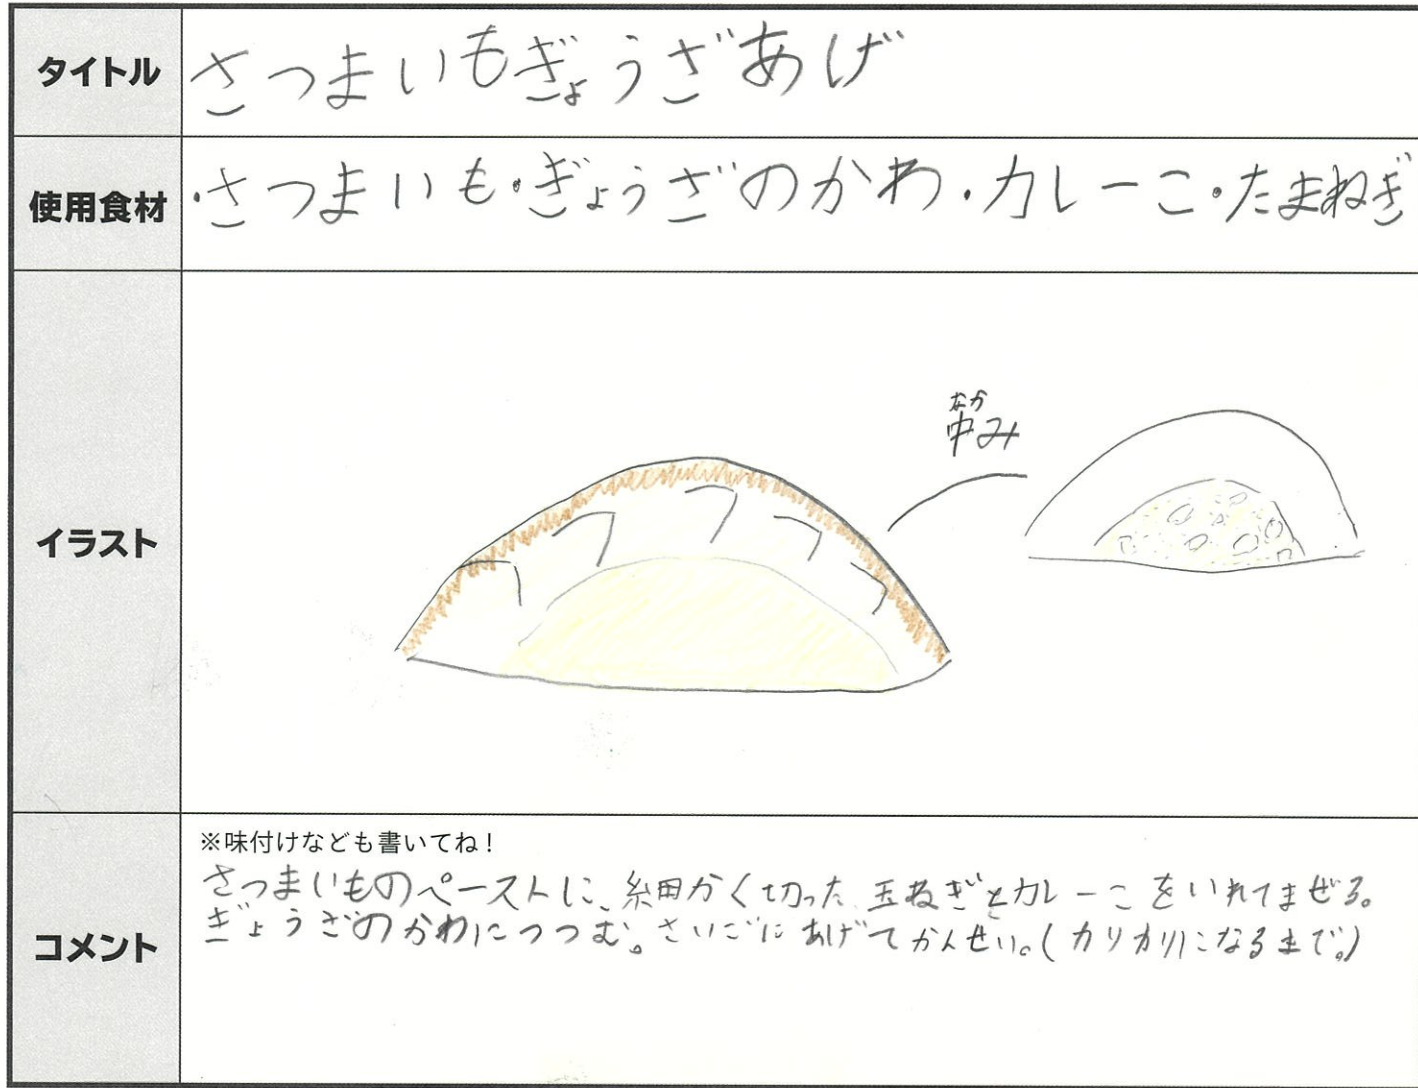 タイトル
さつまいもぎょうざあげ
使用食材
・さつまいも・ぎょうざのかわ・カレーこ・たまねぎ
イラスト
なか
中み
コメント
※味付けなども書いてね!
さつまいものペーストに、細かく切った玉ねぎとカレーこをいれてまぜる。
ぎょうざのかわにつつむ。さいごにあげてかんせい。(カリカリになるまで。)